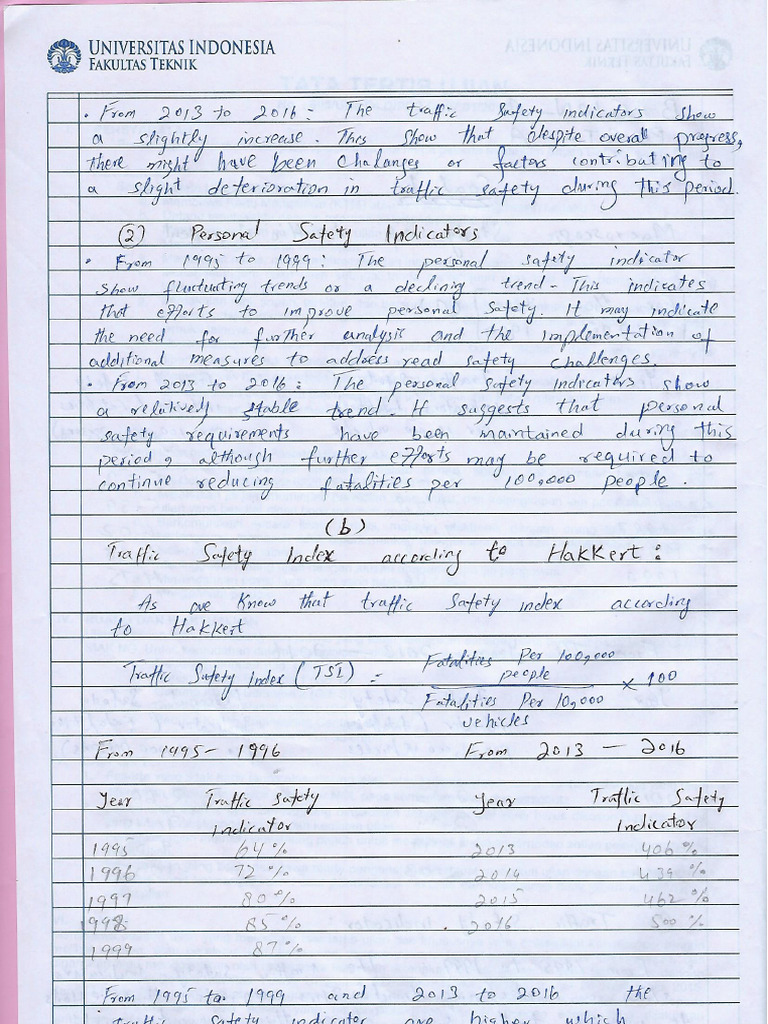 UNIVERSITAS INDONESIA
FAKULTAS TEKNIK
• From 2013 to 2016: The traffic safety indicators show
a slightly increase. This show that despite overal progress,
there might have been chalanges or factors contributing to
a slight deterioration in traffic safety during this period.
(2) Personal Safety Indicators
• From 1995 to 1999: The personal safety indicator
show fluctuating trends or a declining trend. This indicates
that efforts to improve personal safety. It may indicate
the need for further analysis and the implementation of
additional measures to address read safety challenges
• From 2013 to 2016: The personal safety indicators show
a relatively stable trend. It suggests that personal
safety requirements have been maintained during this
period, although further efforts may be required to
continue reducing fatalities per 100,000 people.
(b)
Traffic Safety Index according to Hakkert:
As we know that traffic safety index according
to Hakkert
Traffic Safety Index (TSI) = Fatalities Per 100,000
people
Fatalities Per 10,000
vehicles
× 100
From 1995 - 1996 From 2013 - 2016
Year Traffic Safety Year Traffic Safety
Indicator Indicator
1995 64% 2013 406%
1996 72% 2014 439%
1997 80% 2015 462%
1998 85% 2016 500%
1999 87%
From 1995 to 1999 and 2013 to 2016 the
traffic safety indicator are higher which